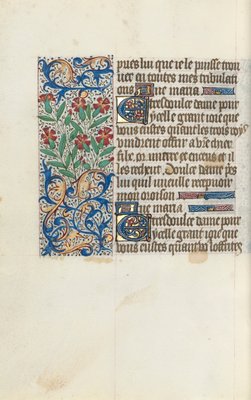 pues lui que ie le puisse trou
uer en toutes mes tribulati
ons Aue maria
Tresdoulce dame pour
ycelle grant ioie que
vous eustes quant les trois roys
vindrent offrir a vre chier
filz or mirre et encens et il
les receut Doulce dame
lui quil vueille receuoir
mon oroison
Aue maria
Tresdoulce dame pour
ycelle grant ioie que
vous eustes quant vo offristes